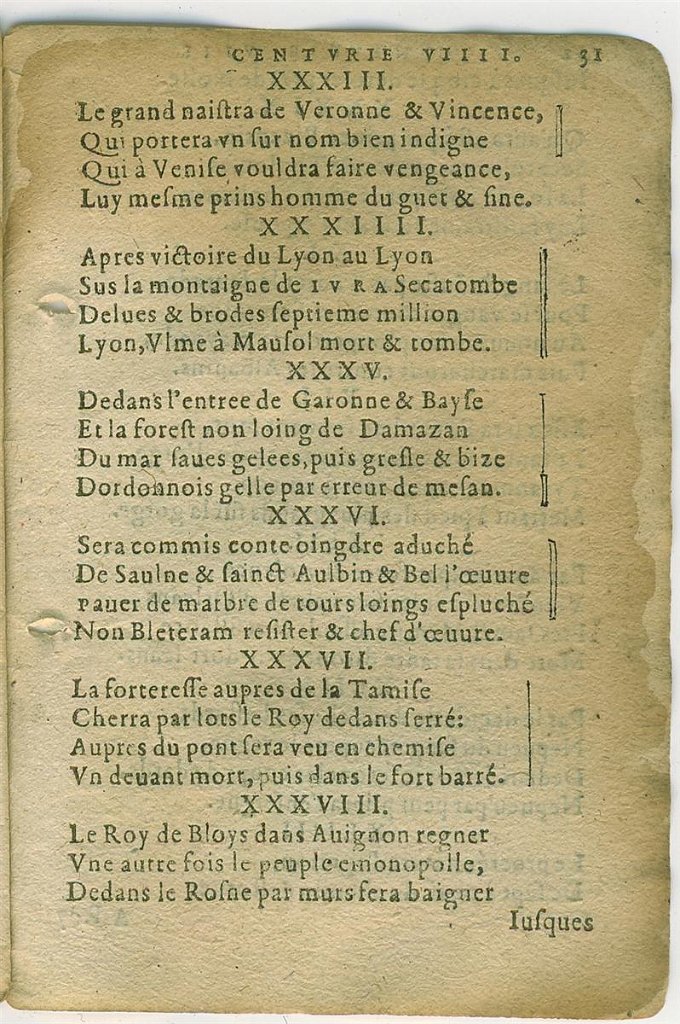 CENTVRIE VIIII. 31
XXXIII.
Le grand naiſtra de Veronne & Vincence,
Qui portera vn ſur nom bien indigne
Qui à Veniſe vouldra faire vengeance,
Luy meſme prins homme du guet & ſine.
XXXIIII.
Apres victoire du Lyon au Lyon
Sus la montaigne de IVRA Secatombe
Delues & brodes ſeptieme million
Lyon,Vlme à Mauſol mort & tombe.
XXXV.
Dedans l'entree de Garonne & Bayſe
Et la foreſt non loing de Damazan
Du mar ſaues gelees,puis greſle & bize
Dordonnois gelle par erreur de meſan.
XXXVI.
Sera commis conte oingdre aduché
De Saulne & ſainct Aulbin & Bel l'œuure
Pauer de marbre de tours loings eſpluché
Non Bleteram reſiſter & chef d'œuure.
XXXVII.
La fortereſſe aupres de la Tamiſe
Cherra par lors le Roy dedans ſerré:
Aupres du pont ſera veu en chemiſe
Vn deuant mort, puis dans le fort barré.
XXXVIII.
Le Roy de Bloys dans Auignon regner
Vne autre fois le peuple emonopolle,
Dedans le Roſne par murs fera baigner
Iuſques